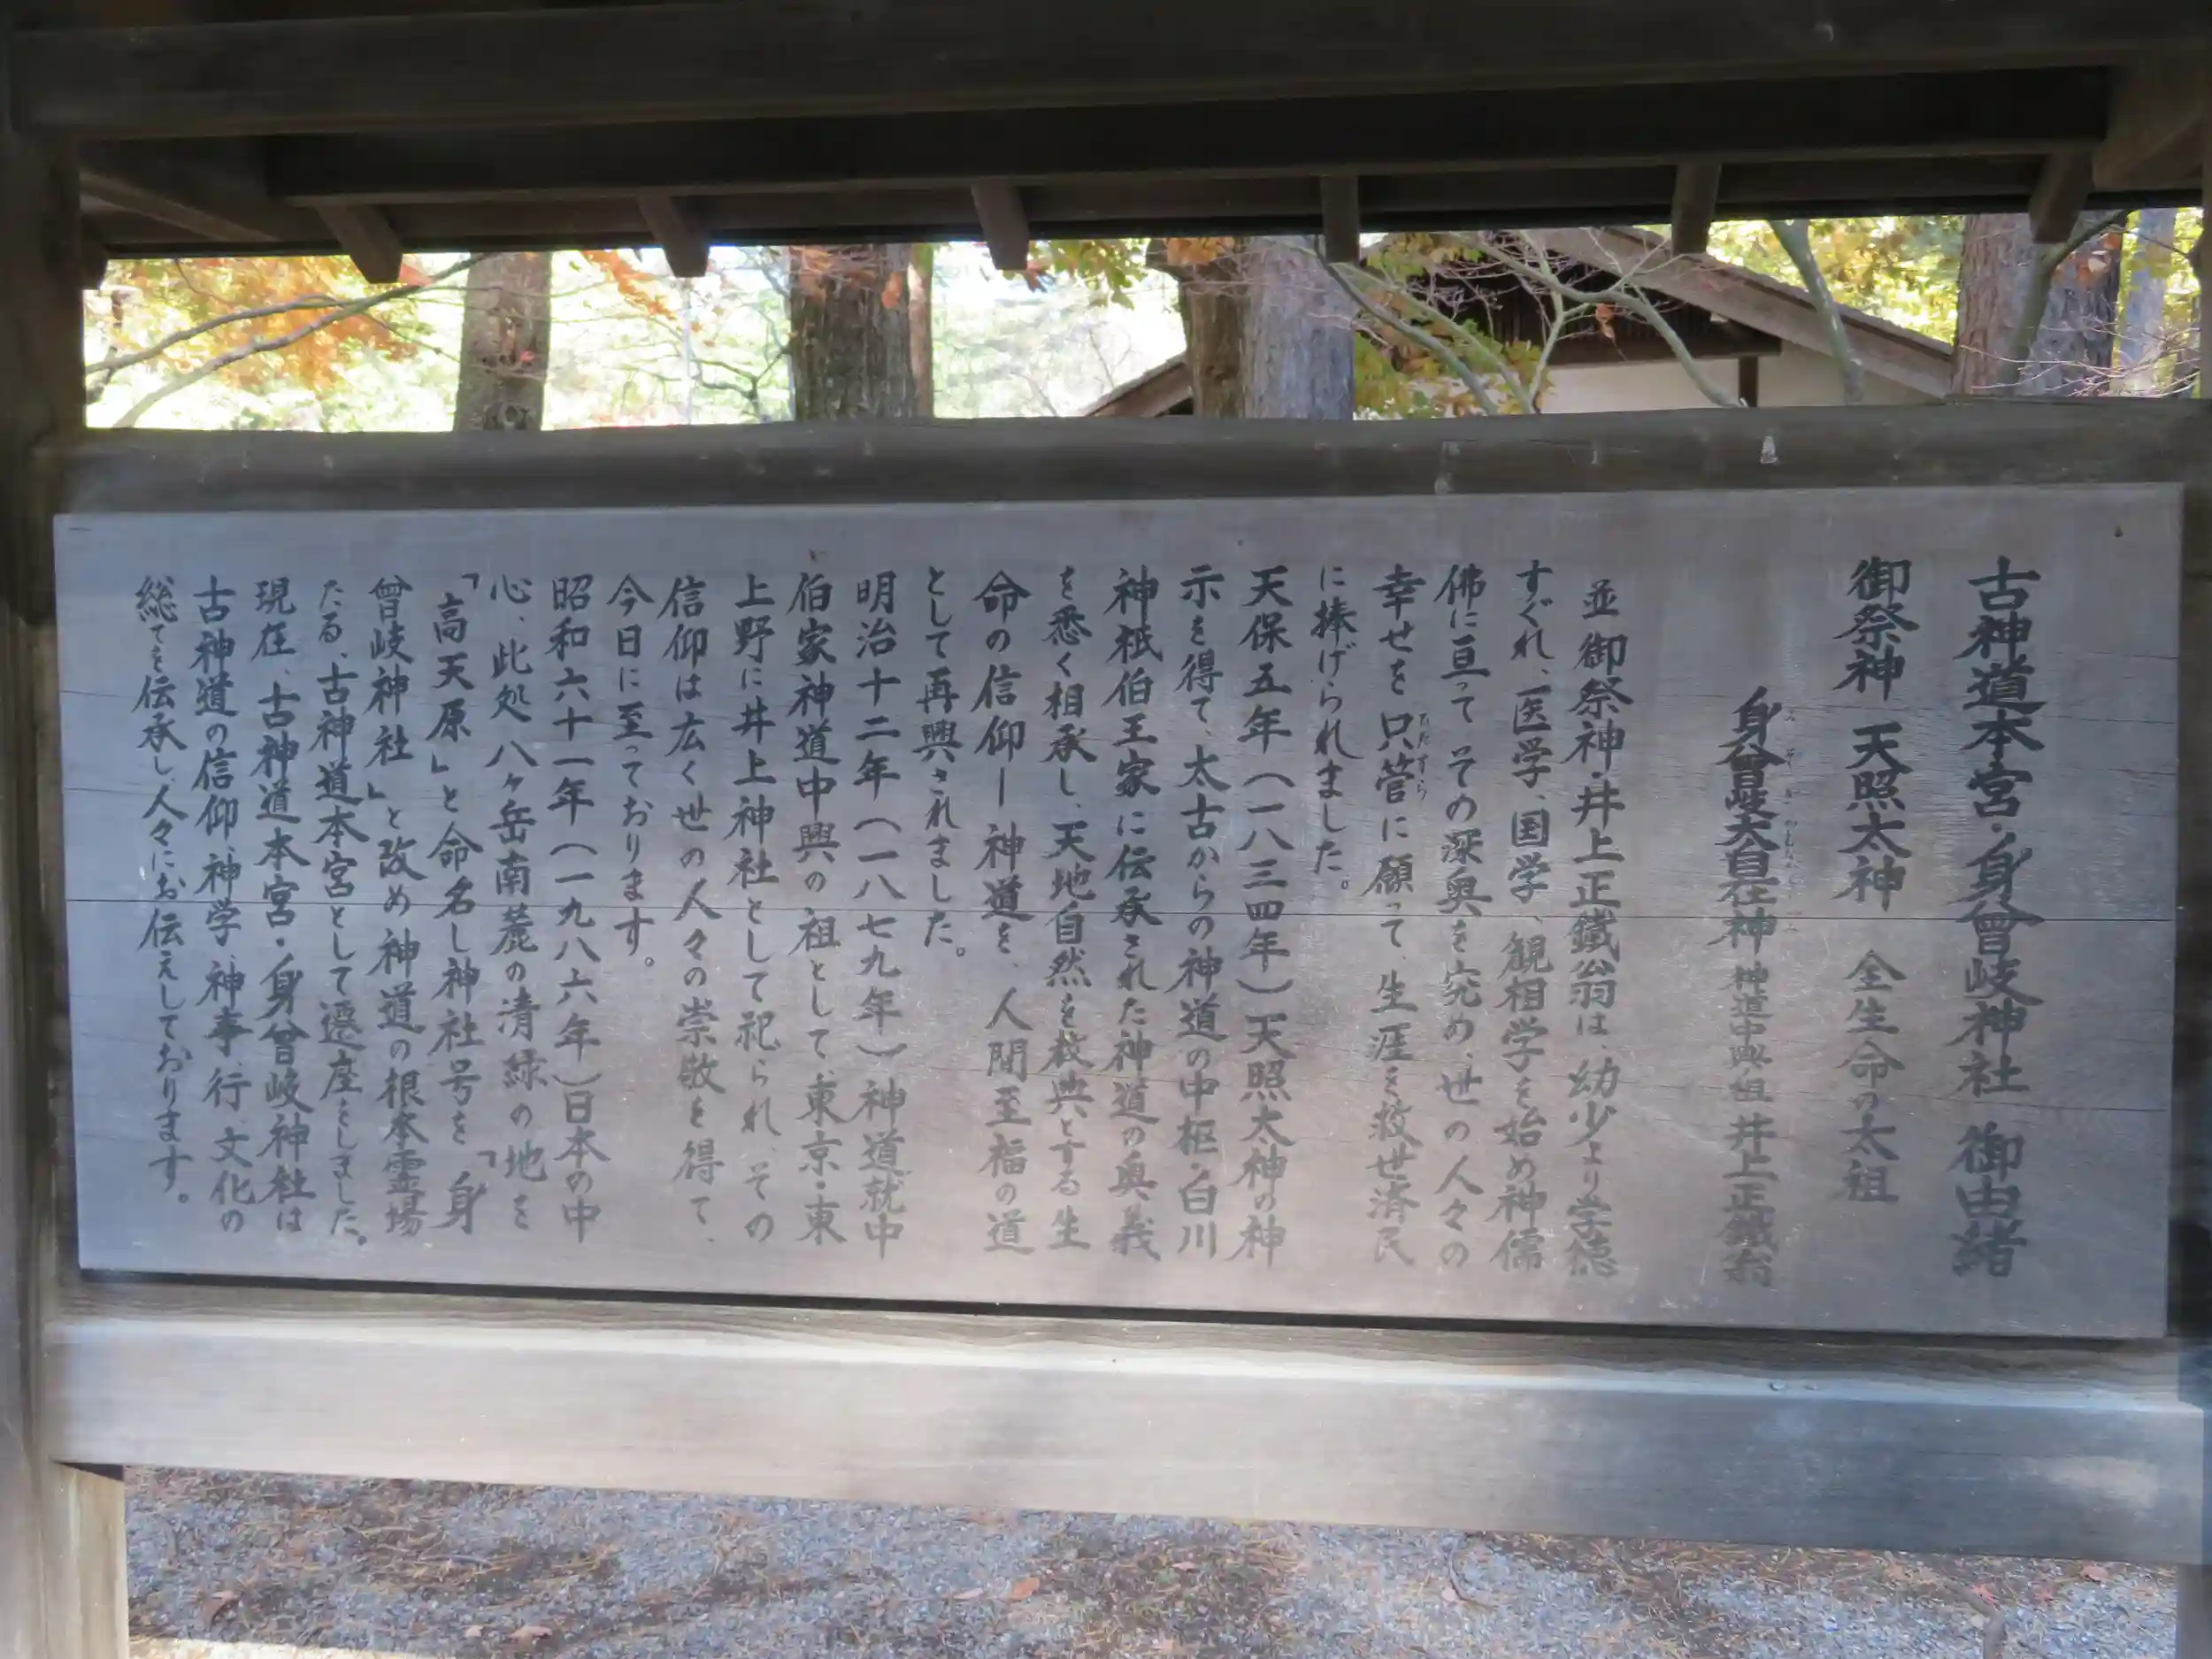 古神道本宮・身曾岐神社 御由緒
御祭神 天照太神 全生命の太祖
身曾岐大自在神 神道中興祖 井上正鐵翁
並 御祭神・井上正鐵翁は、幼少より学徳
すぐれ、医学、国学、観相学を始め神儒
佛に亘って その深奥を究め、世の人々の
幸せを 只管に願って、生涯を救世済民
ひたすら
に捧げられました。
天保五年(一八三四年)天照太神の神
示を得て、太古からの神道の中枢・白川
神祇伯王家に伝承された神道の奥義
を悉く相承し、天地自然を教典とする生
命の信仰ー神道を、人間至福の道
として再興されました。
明治十二年(一八七九年)神道就中
伯家神道中興の祖として、東京・東
上野に井上神社として祀られ、その
信仰は広く世の人々の崇敬を得て、
今日に至っております。
昭和六十一年(一九八六年)日本の中
心、此処八ヶ岳南麓の清緑の地を
「高天原」と命名し神社号を「身
曾岐神社」と改め神道の根本霊場
たる、古神道本宮として遷座をしました。
現在、古神道本宮・身曾岐神社は
古神道の信仰、神学、神事、行、文化の
総てを伝承し、人々にお伝えしております。